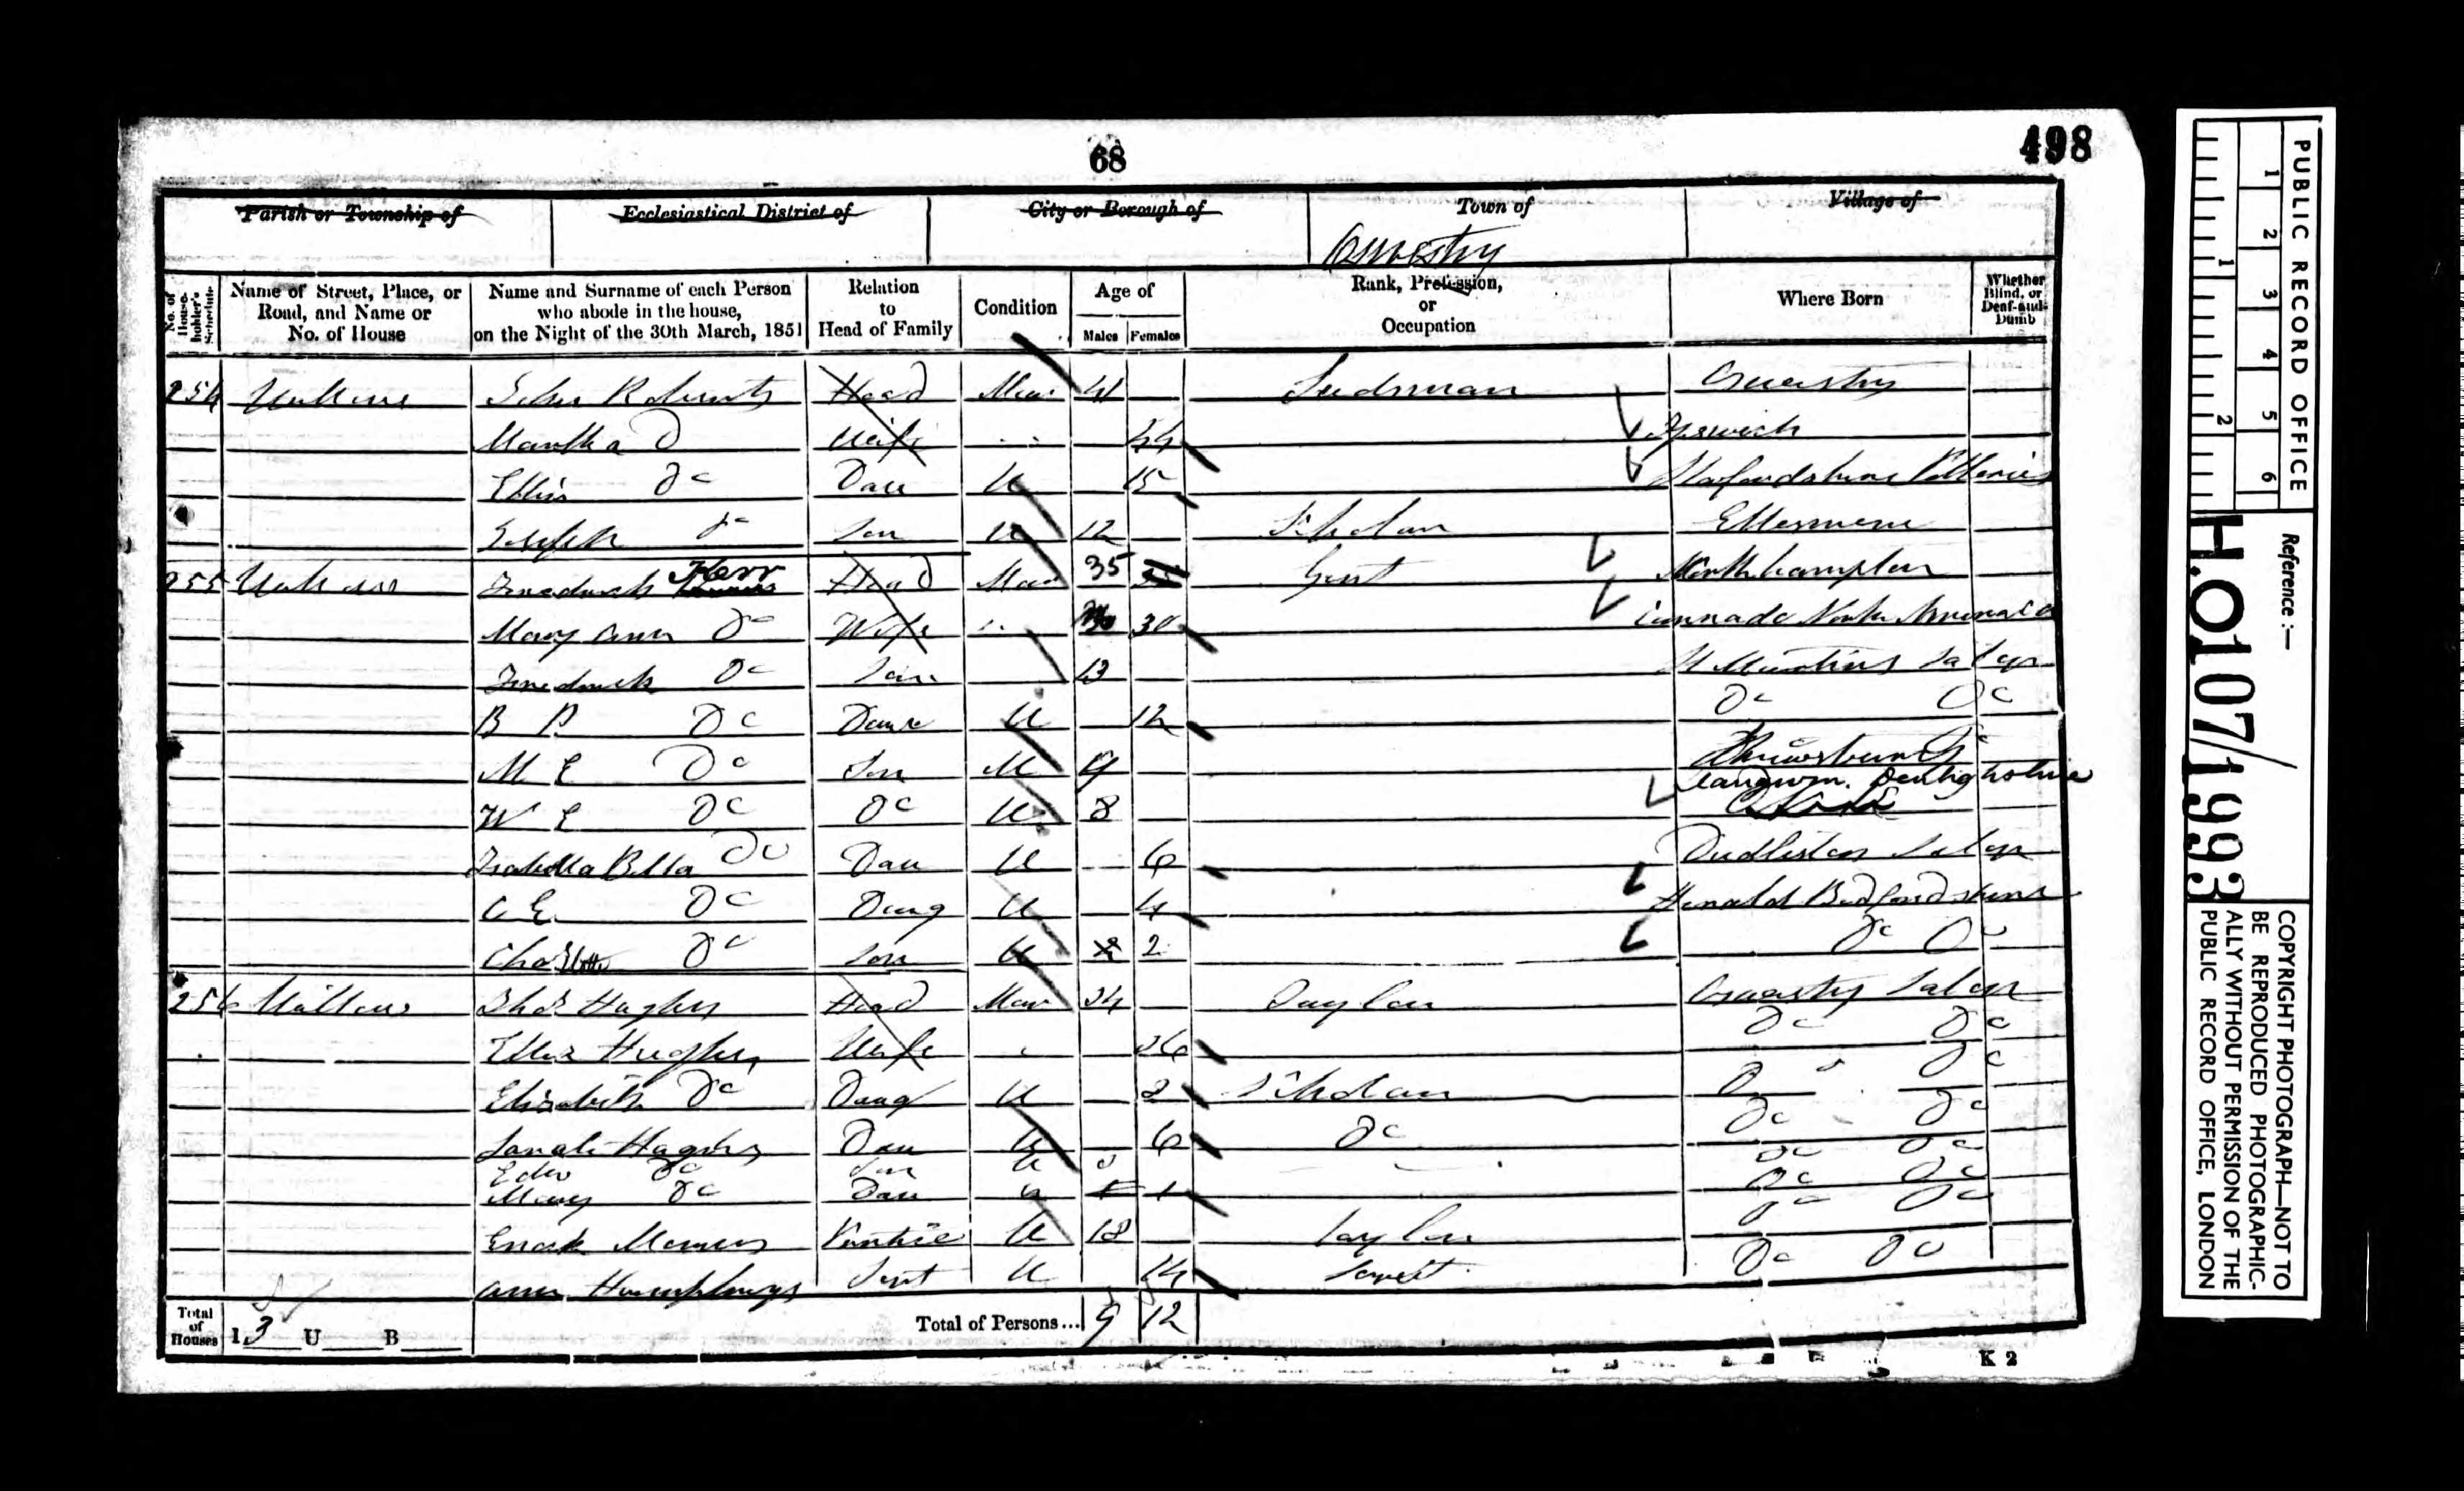 68
498
Parish or Township of
Ecclesiastical District of
City or Borough of
Town of
Village of
Oswestry
No. of House-holder's Schedule
Name of Street, Place, or Road, and Name or No. of House
Name and Surname of each Person who abode in the house, on the Night of the 30th March, 1851
Relation to Head of Family
Condition
Age of
Males
Females
Rank, Profession, or Occupation
Where Born
Whether Blind, or Deaf-and-Dumb
254 Roberts Head Mar 41 Oswestry
Martha Do Wife 44 Ipswich
Do Dau U 15 Staffordshire Potteries
Joseph Do Son U 12 Scholar Ellesmere
255 Frederick Kerr Head Mar 35 Gent Northampton
Mary Ann Do Wife 30 Cannada North America
Frederick Do Son 13 St Martins Salop
B P Do U 12 Do Do
M E Do Son U 9 Shrewsbury
Llangwm. Denbighshire
W E Do Do U 8
Isabella Bella Do Dau U 6 Dudleston Salop
C E Do Daug U 4 Bedfordshire
Do Son U 2 2 Do Do
256 Thos Hughes Head Mar 34 Taylor Oswestry Salop
Hughes Wife 36 Do Do
Elizabeth Do Daug U Scholar Do Do
Sarah Hughes Dau U 6 Do Do Do
Edw Do Son U Do Do
Mary Do Dau U 1 Do Do
Enoch U 18 Taylor Do Do
Ann Humphreys Sert U 14 Servt Do Do
Total of Houses
I 3 U B
Total of Persons... 9 12
K 2
PUBLIC RECORD OFFICE
1 2 3 4 5 6
1 2
Reference :—
H.O 107/1993
COPYRIGHT PHOTOGRAPH—NOT TO BE REPRODUCED PHOTOGRAPHICALLY WITHOUT PERMISSION OF THE PUBLIC RECORD OFFICE, LONDON